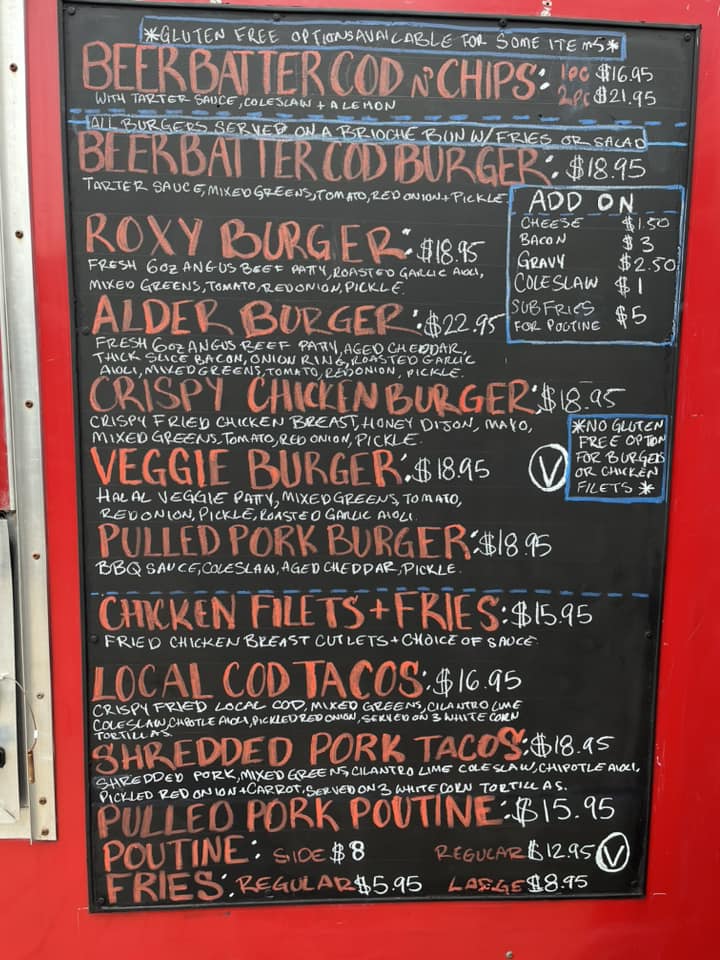 *GLUTEN FREE OPTIONS AVAILABLE FOR SOME ITEMS*
BEERBATTER COD N' CHIPS: 1PC $16.95
2PC $21.95
WITH TARTER SAUCE, COLESLAW + A LEMON
ALL BURGERS SERVED ON A BRIOCHE BUN W/ FRIES OR SALAD
BEERBATTER COD BURGER: $18.95
TARTER SAUCE, MIXED GREENS, TOMATO, RED ONION + PICKLE
ADD ON
CHEESE $1.50
BACON $3
GRAVY $2.50
COLESLAW $1
SUB FRIES
FOR POUTINE $5
ROXY BURGER: $18.95
FRESH 6OZ ANGUS BEEF PATTY, ROASTED GARLIC AIOLI,
MIXED GREENS, TOMATO, RED ONION, PICKLE.
ALDER BURGER: $22.95
FRESH 6OZ ANGUS BEEF PATTY, AGED CHEDDAR,
THICK SLICE BACON, ONION RING, ROASTED GARLIC
AIOLI, MIXED GREENS, TOMATO, RED ONION, PICKLE.
CRISPY CHICKEN BURGER: $18.95
CRISPY FRIED CHICKEN BREAST, HONEY DIJON, MAYO,
MIXED GREENS, TOMATO, RED ONION, PICKLE.
*NO GLUTEN
FREE OPTION
FOR BURGERS
OR CHICKEN
FILETS*
VEGGIE BURGER: $18.95 V
HALAL VEGGIE PATTY, MIXED GREENS, TOMATO,
RED ONION, PICKLE, ROASTED GARLIC AIOLI.
PULLED PORK BURGER: $18.95
BBQ SAUCE, COLESLAW, AGED CHEDDAR, PICKLE.
CHICKEN FILETS + FRIES: $15.95
FRIED CHICKEN BREAST CUTLETS + CHOICE OF SAUCE
LOCAL COD TACOS: $16.95
CRISPY FRIED LOCAL COD, MIXED GREENS, CILANTRO LIME
COLESLAW, CHIPOTLE AIOLI, PICKLED RED ONION, SERVED ON 3 WHITE CORN
TORTILLAS.
SHREDDED PORK TACOS: $18.95
SHREDDED PORK, MIXED GREENS, CILANTRO LIME COLESLAW, CHIPOTLE AIOLI,
PICKLED RED ONION + CARROT, SERVED ON 3 WHITE CORN TORTILLAS.
PULLED PORK POUTINE: $15.95
POUTINE: SIDE $8 REGULAR $12.95 V
FRIES: REGULAR $5.95 LARGE $8.95